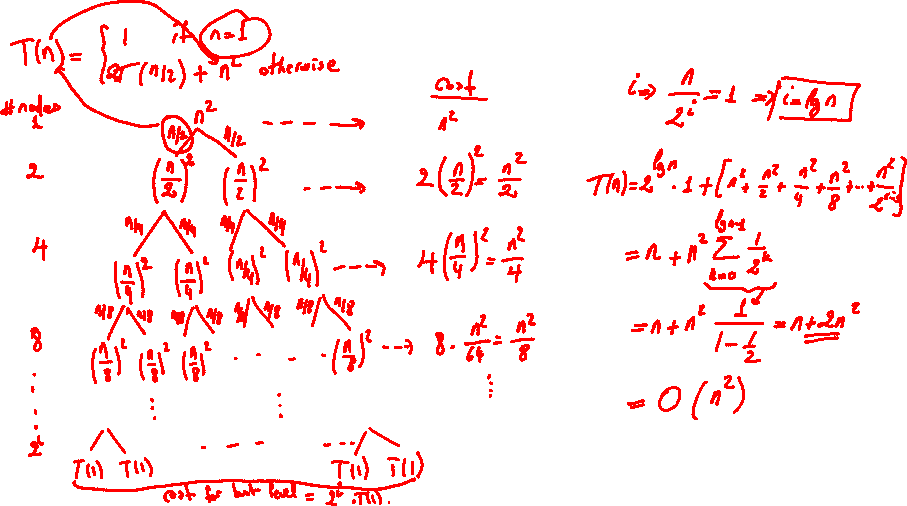 T(n) = { 1 if n=1
2T(n/2) + n² otherwise
#nodes
cost
1 n² ----> n²
n/2 n/2
2 (n/2)² (n/2)² ----> 2(n/2)² = n²/2
n/4 n/4 n/4 n/4
4 (n/4)² (n/4)² (n/4)² (n/4)² ----> 4(n/4)² = n²/4
n/8 n/8 n/8 n/8 n/8 n/8 n/8 n/8
8 (n/8)² (n/8)² (n/8)² .... (n/8)² ---> 8 · n²/64 = n²/8
⋮ ⋮ ⋮ ⋮
2ⁱ T(1) T(1) ---- ---- T(1) T(1)
cost for last level = 2ⁱ · T(1).
i => n/2ⁱ = 1 => i = lg n
T(n) = 2^(lg n) · 1 + [n² + n²/2 + n²/4 + n²/8 + ... + n²/2^(i-1)]
= n + n² ∑_(k=0)^(lg n-1) 1/2^k
= n + n² 1/(1 - 1/2) = n + 2n²
= O(n²)